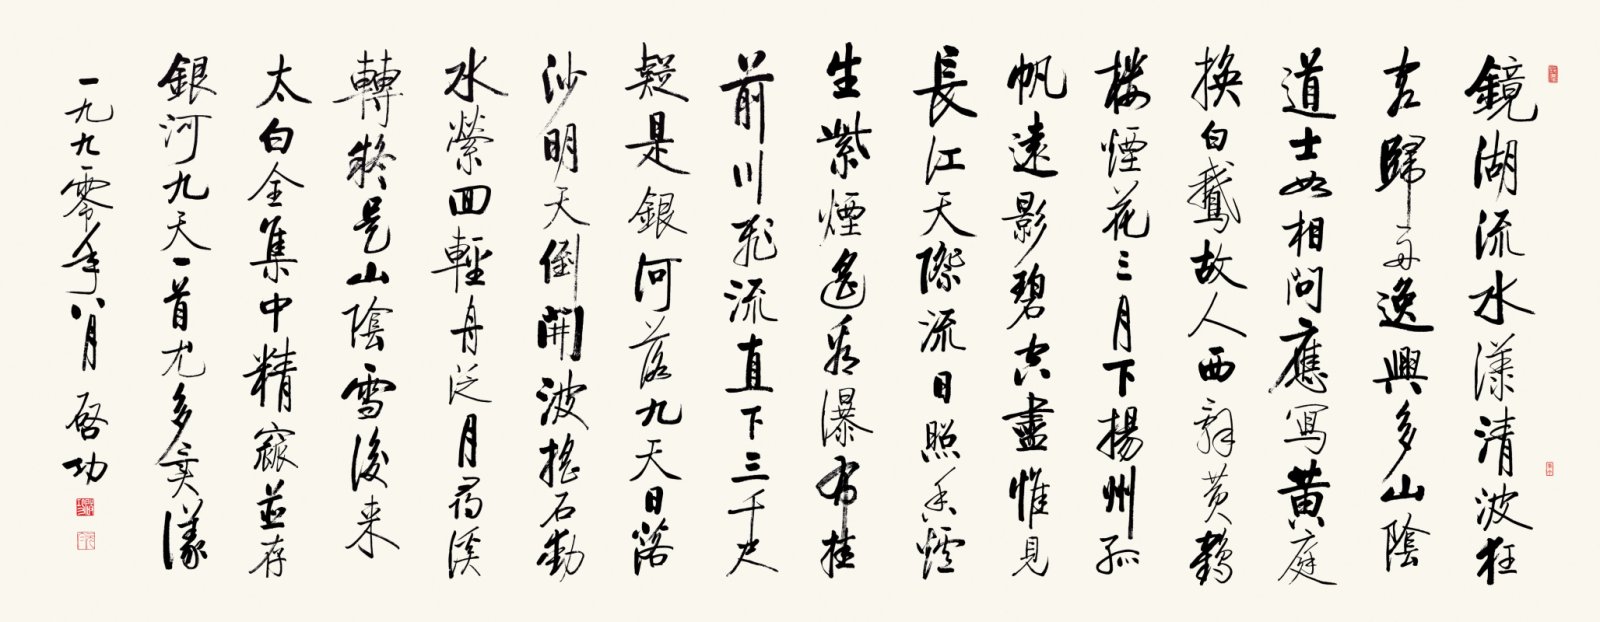 鏡湖流水漾清波狂
客歸舟逸興多山陰
道士如相問應寫黄庭
換白鵝故人西辭黄鶴
樓煙花三月下揚州孤
帆遠影碧空盡惟見
長江天際流日照香爐
生紫煙遙看瀑布挂
前川飛流直下三千尺
疑是銀河落九天日落
沙明天倒開波搖石動
水縈回輕舟泛月尋溪
轉疑是山陰雪後来
太白全集中精窳並存
銀河九天一首尤多
一九九零年八月 啓功